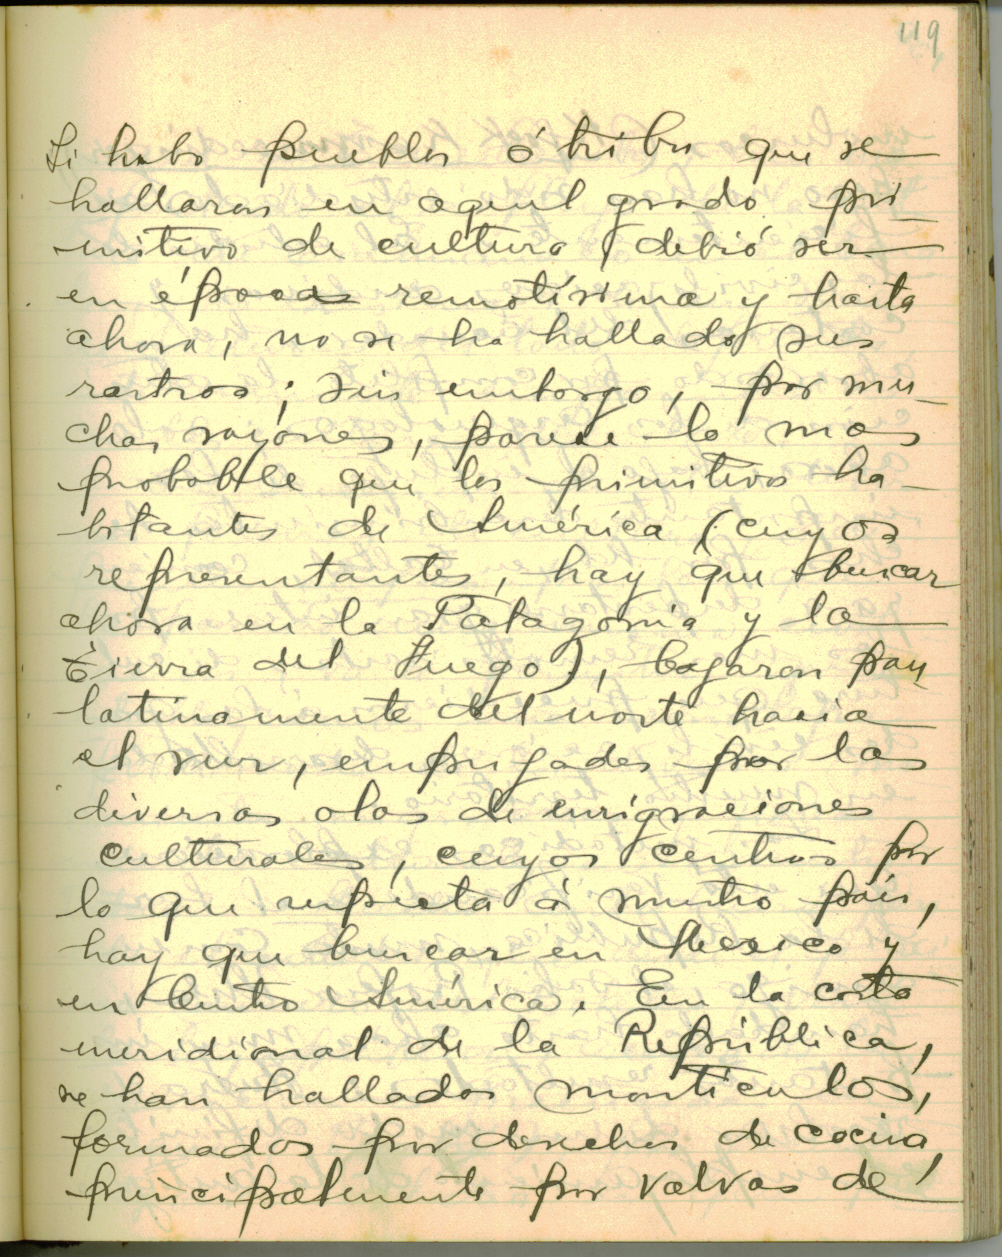 119
Si hubo pueblos ó tribus que se
hallaron en aquel grado pri-
mitivo de cultura debió ser
en época remotísima y hasta
ahora, no se ha hallado sus
rastros; sin embargo, por mu-
chas razones, parece lo mas
probable que los primitivos ha-
bitantes de América (cuyos
representantes, hay que buscar
ahora en la Patagonia y la
Tierra del Fuego), bajaron pau
latinamente del norte hacia
el sur, empujados por las
diversas olas de emigraciones
culturales, cuyos centros por
lo que respecta á nuestro país,
hay que buscar en Mexico y
en Centro América. En la costa
meridional de la República,
se han hallados monticulos,
formados por desechos de cocina,
principalmente por valvas de